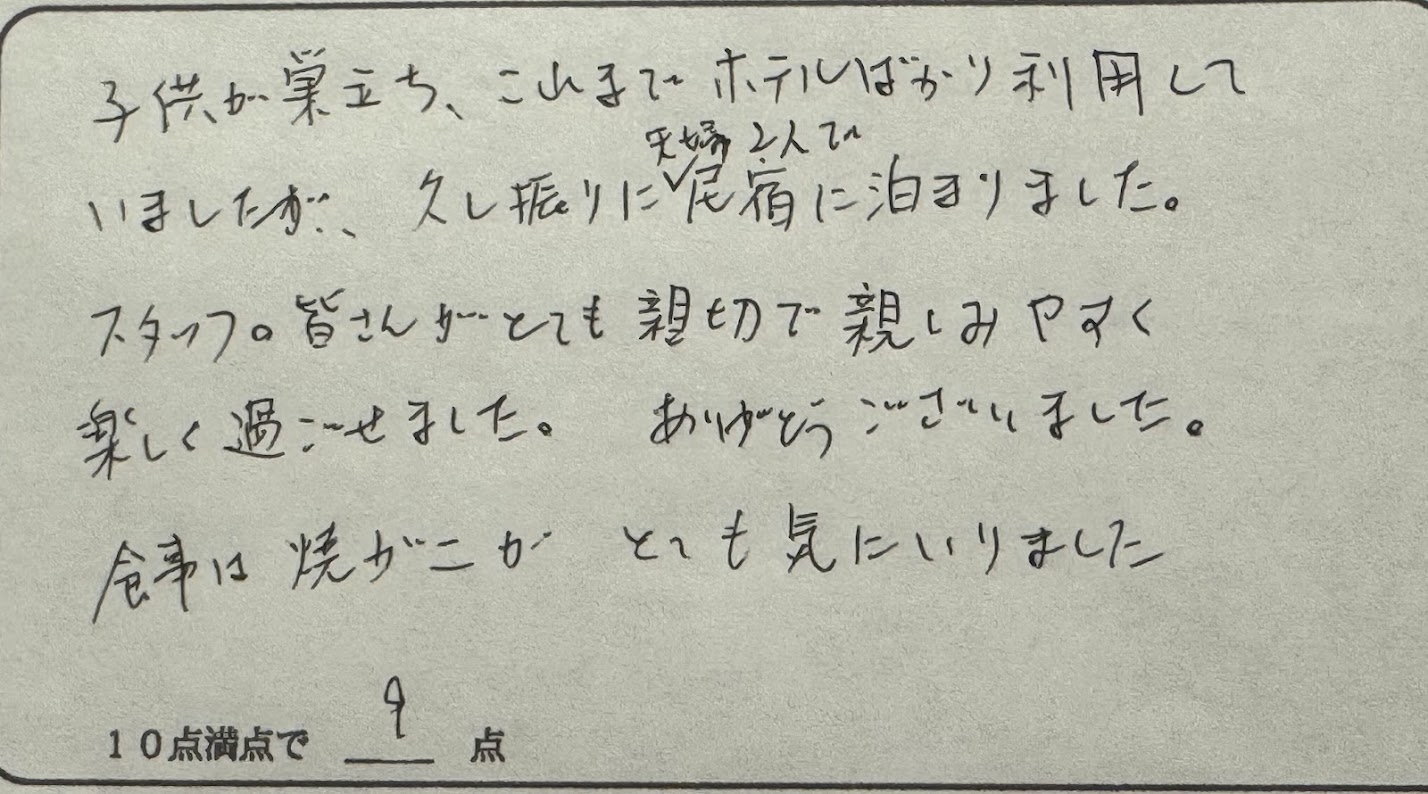 子供が巣立ち、これまでホテルばかり利用して
夫婦2人で
いましたが、久し振りに民宿に泊まりました。
スタッフの皆さんがとても親切で親しみやすく
楽しく過ごせました。 ありがとうございました。
食事は焼がにがとても気にいりました
10点満点で 9 点